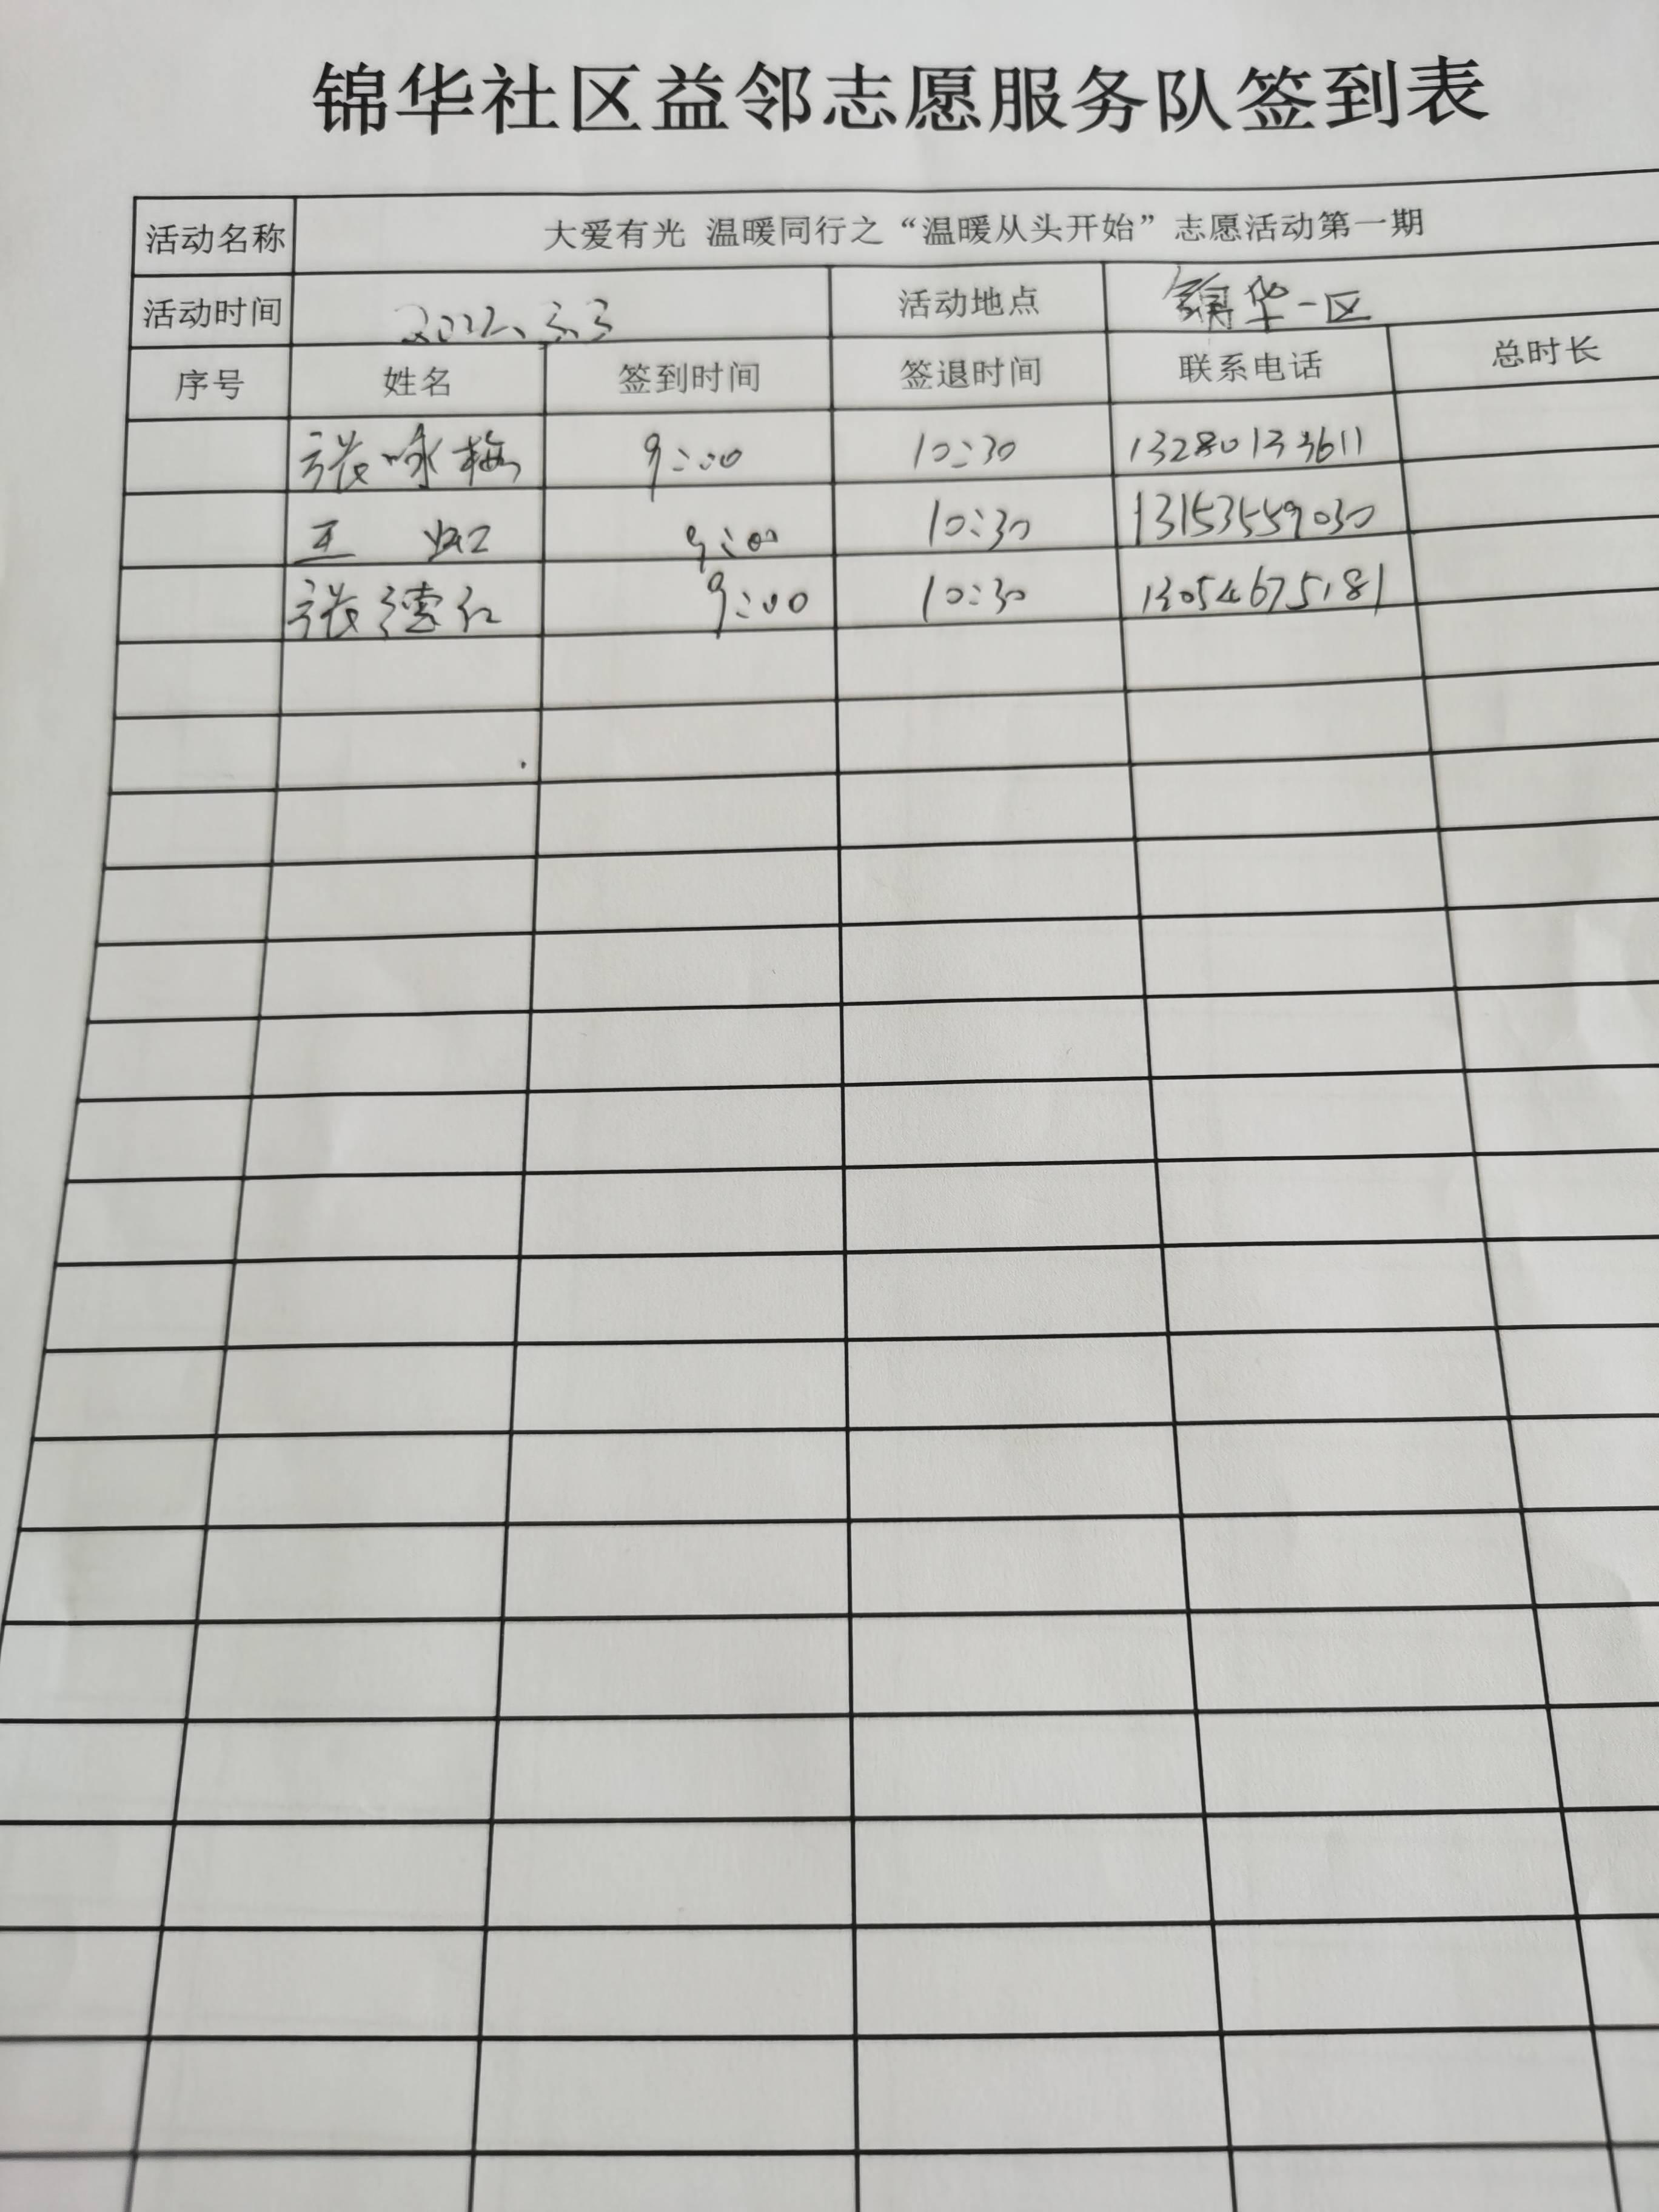 锦华社区益邻志愿服务队签到表
活动名称 大爱有光 温暖同行之“温暖从头开始”志愿活动第一期
活动时间 2022.3.3 活动地点 锦华一区
序号 姓名 签到时间 签退时间 联系电话 总时长
张咏梅 9:00 10:30 13280133611
王虹 9:00 10:30 13153559030
张德红 9:00 10:30 13054675181